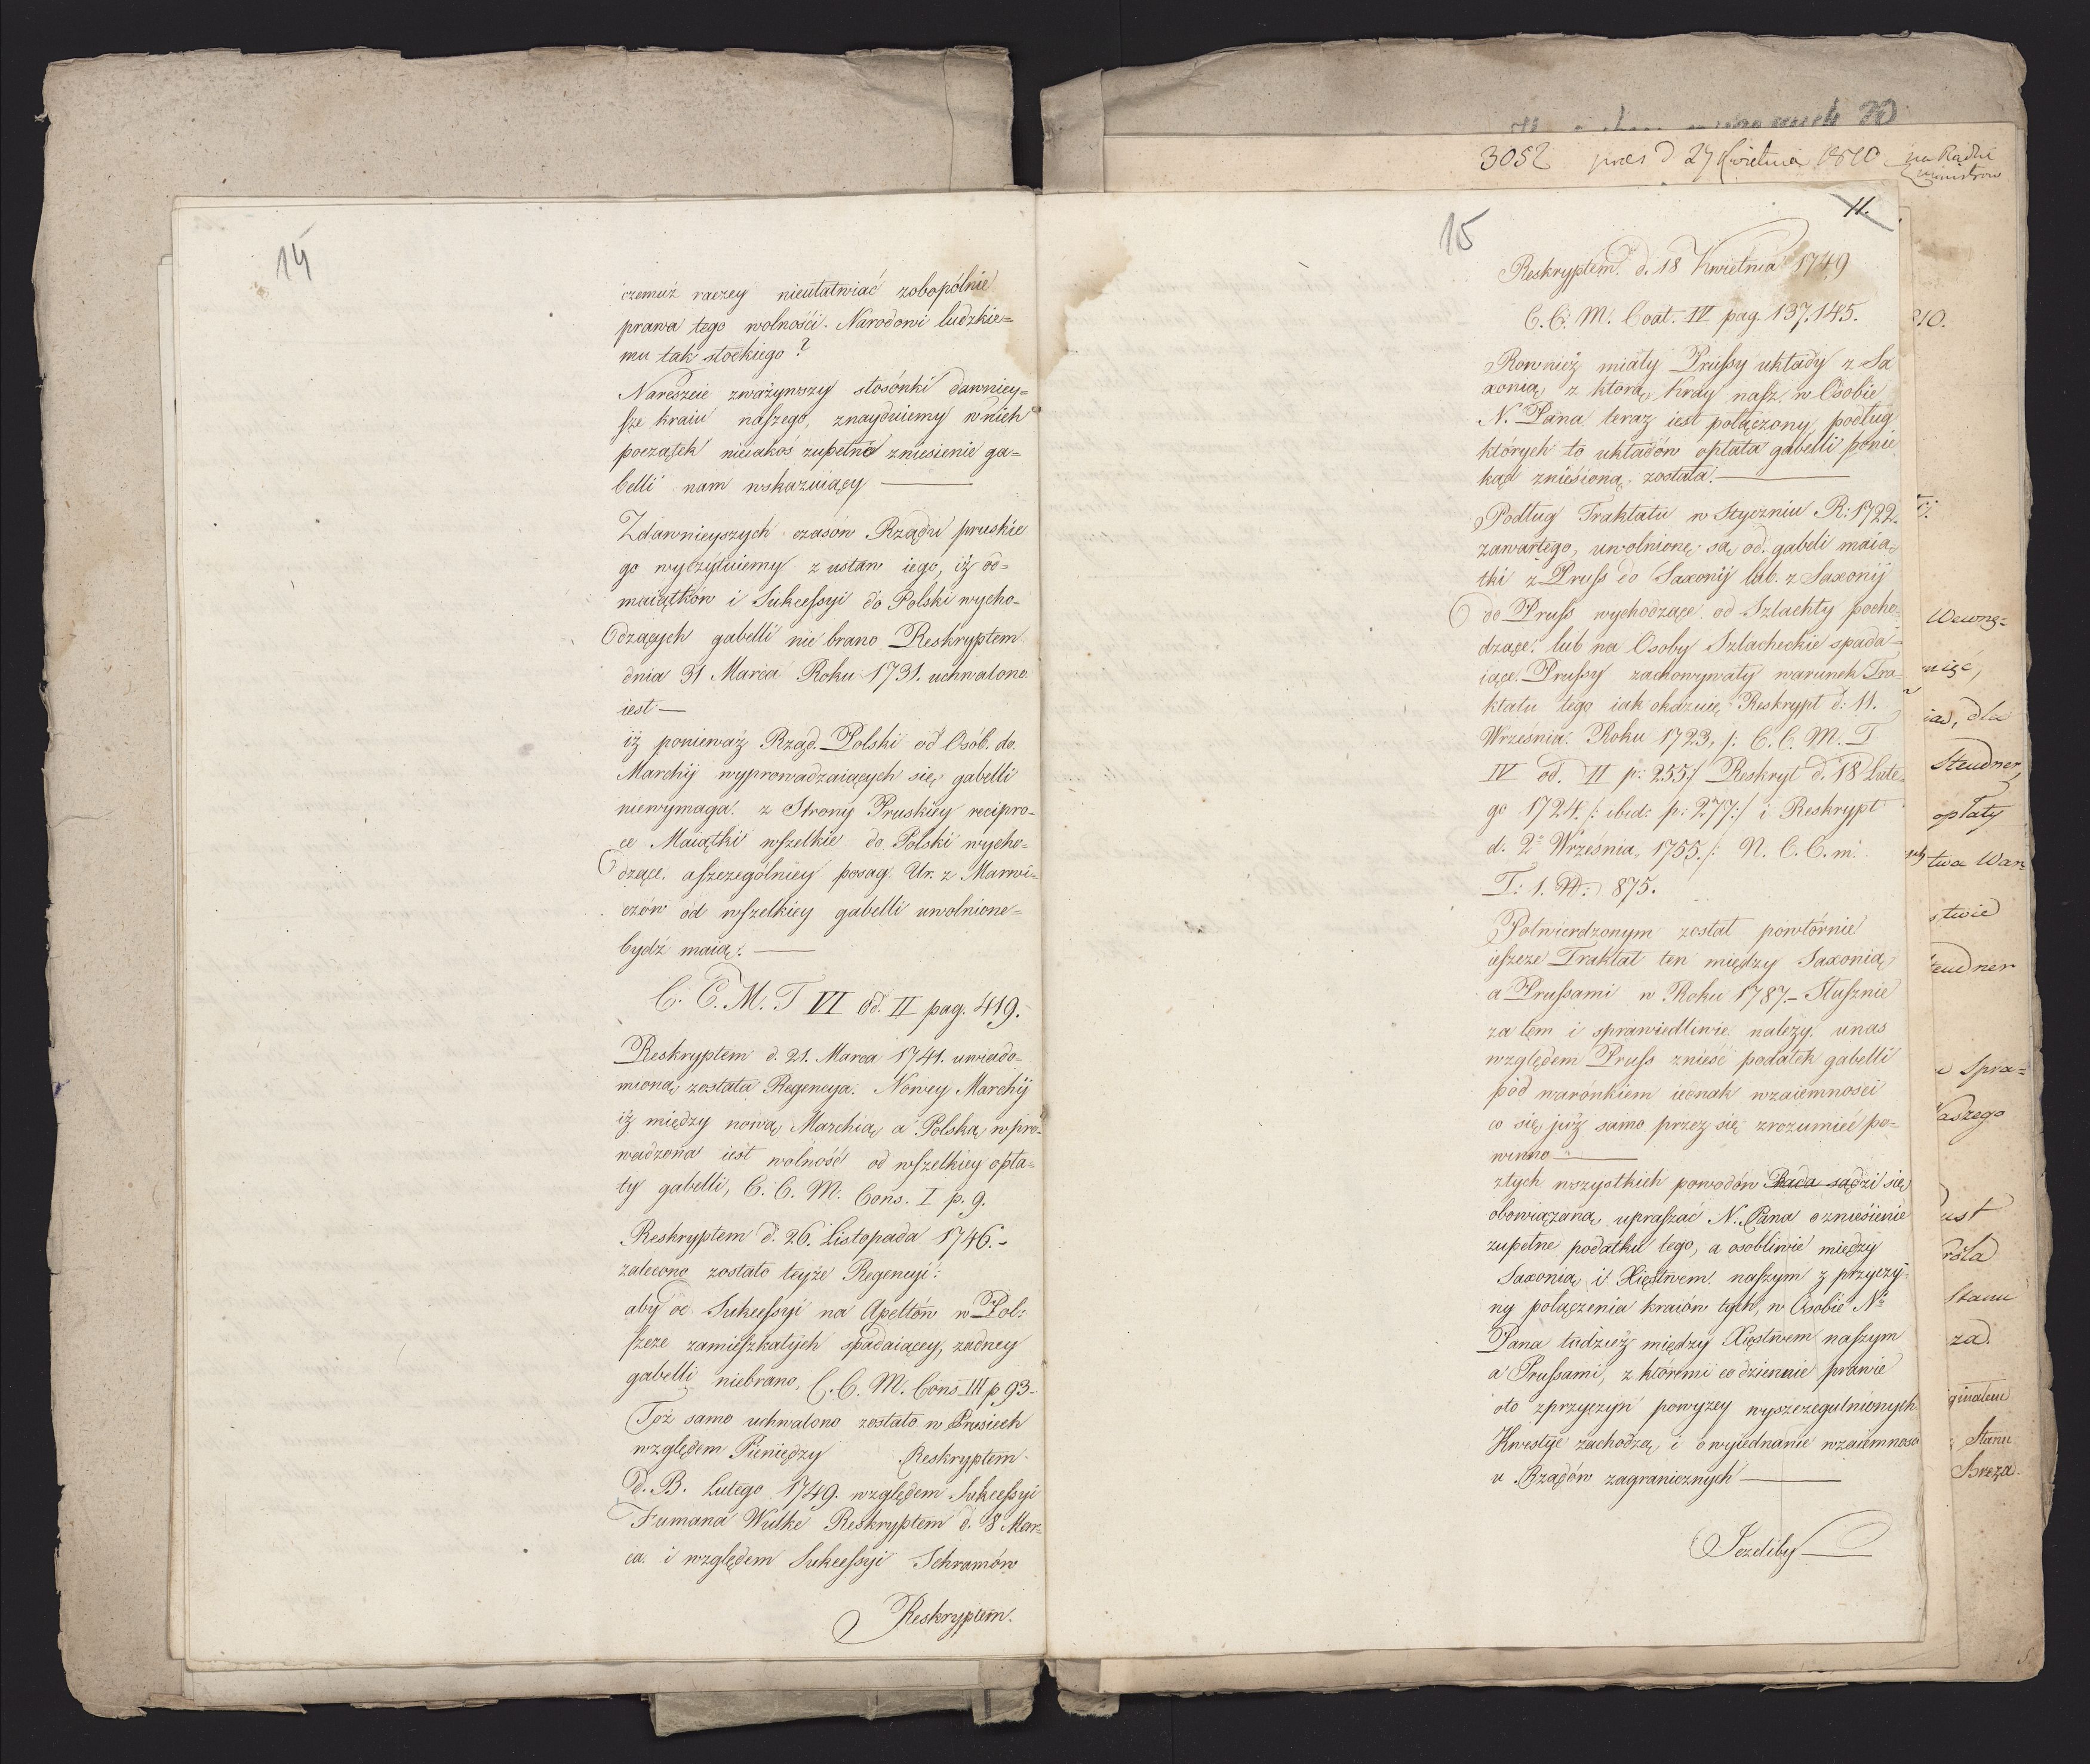 14
czemuż raczey nieułatwiać zobopólnie
prawa tego wolności. Narodowi ludzkie=
mu tak słodkiego?
Nareszcie zważywszy stosónki dawniey=
sze kraiu naszego, znayduiemy w nich
początek nieiakoś zupełne zniesienie ga=
belli nam wskazuiący —
Z dawnieyszych czasow Rządu pruskie
go wyczytuiemy z ustaw iego, iż od=
maiątków i Sukcessyi do Polski wycho-
dzących gabelli nie brano Reskryptem
dnia 31 Marca Roku 1731. uchwalono
iest —
iż ponieważ Rząd Polski od Osób do
Marchij wyprowadzaiących się gabelli
niewymaga. z Strony Pruskiey recipro-
ce Maiątki wszelkie do Polski wycho-
dzące. aszczególniey posag Ur. z Marwi-
czów od wszelkiey gabelli uwolnione=
bydź maią. —
C. C. M. T VI od. II pag. 419.
Reskryptem d. 21. Marca 1741. uwiado-
mioną została Regencya. Nowey Marchij
iż między nową Marchią a Polską wpro-
wadzona iest wolność od wszelkiey opła=
ty gabelli, C. C. M. Cons. I p. 9.
Reskryptem d. 26. Listopada 1746.-
zalecono zostało teyże Regencyi:
aby od Sukcessyi na Apellów w Pol:
szcze zamieszkałych spadaiącey, żadney
gabelli niebrano, C. C. M. Cons III p 93-
Toż samo uchwalono zostało w Prusiech
względem Pieniędzy Reskryptem
d. B. Lutego 1749. względem Sukcessyi
Fumana Wulke Reskryptem d. 8 Mar=
ca. i względem Sukcessyi Schramów
Reskryptem.
3052 praes d 27 Kwietnia 1810 na Radzie
Ministrow
15
11.
Reskryptem. d. 18 Kwietnia 1749
C. C. M. Coat. IV pag. 137.145.
Rownież miały Prussy układy z Sa
xonią z ktorą Kray nasz w Osobie
N. Pana teraz iest połączony, podług
których to układów opłata gabelli ponie
kąd zniesioną została. —
Podług Traktatu w Styczniu R: 1722.
zawartego, uwolnione są od gabeli maią-
tki z Pruss do Saxonij lub z Saxonij
do Pruss wychodzące od Szlachty pocho
dzące. lub na Osoby Szlacheckie spada-
iące. Prussy zachowywały warunek Tra-
ktatu tego iak okazuię Reskrypt d: 11.
Września. Roku 1723, /: C. C. M. T
IV od. II p: 255:/ Reskryt d. 18 Lute-
go 1724. /: ibid: p: 277:/ i Reskrypt
d. 2º Września, 1755. /: N. C. C. m.
T: 1. 875.
Potwierdzonym został powtórnie
ieszcze Traktat ten między Saxonią
a Prussami w Roku 1787.- Słusznie
za tem i sprawiedliwie należy, unas
względem Pruss znieść podatek gabelli
pod warónkiem iednak wzaiemnosci
co się już samo przez się zrozumieć po=
winno —
ztych wszystkich powodów Rada sądzi się
obowiązaną upraszać N. Pana o zniesienie
zupełne podatku tego, a osobliwie między
Saxonią i Xięstwem naszym z przyczy-
ny połączenia kraiów tych, w Osobie Nº
Pana tudzież między Xięstwem naszym
a Prussami, z któremi codziennie prawie
oto zprzyczyn powyzey wyszczegulnionych
Kwestye zachodzą i o wyiednanie wzaiemnosci
u Rządów zagranicznych —
Jezeliby —
810.
Wewnę=
dla
Steudner,
opłaty
twa War=
stwie
teudner
Spra=
aszego
Stanu
za.
ginalem
Stanu
Breza.